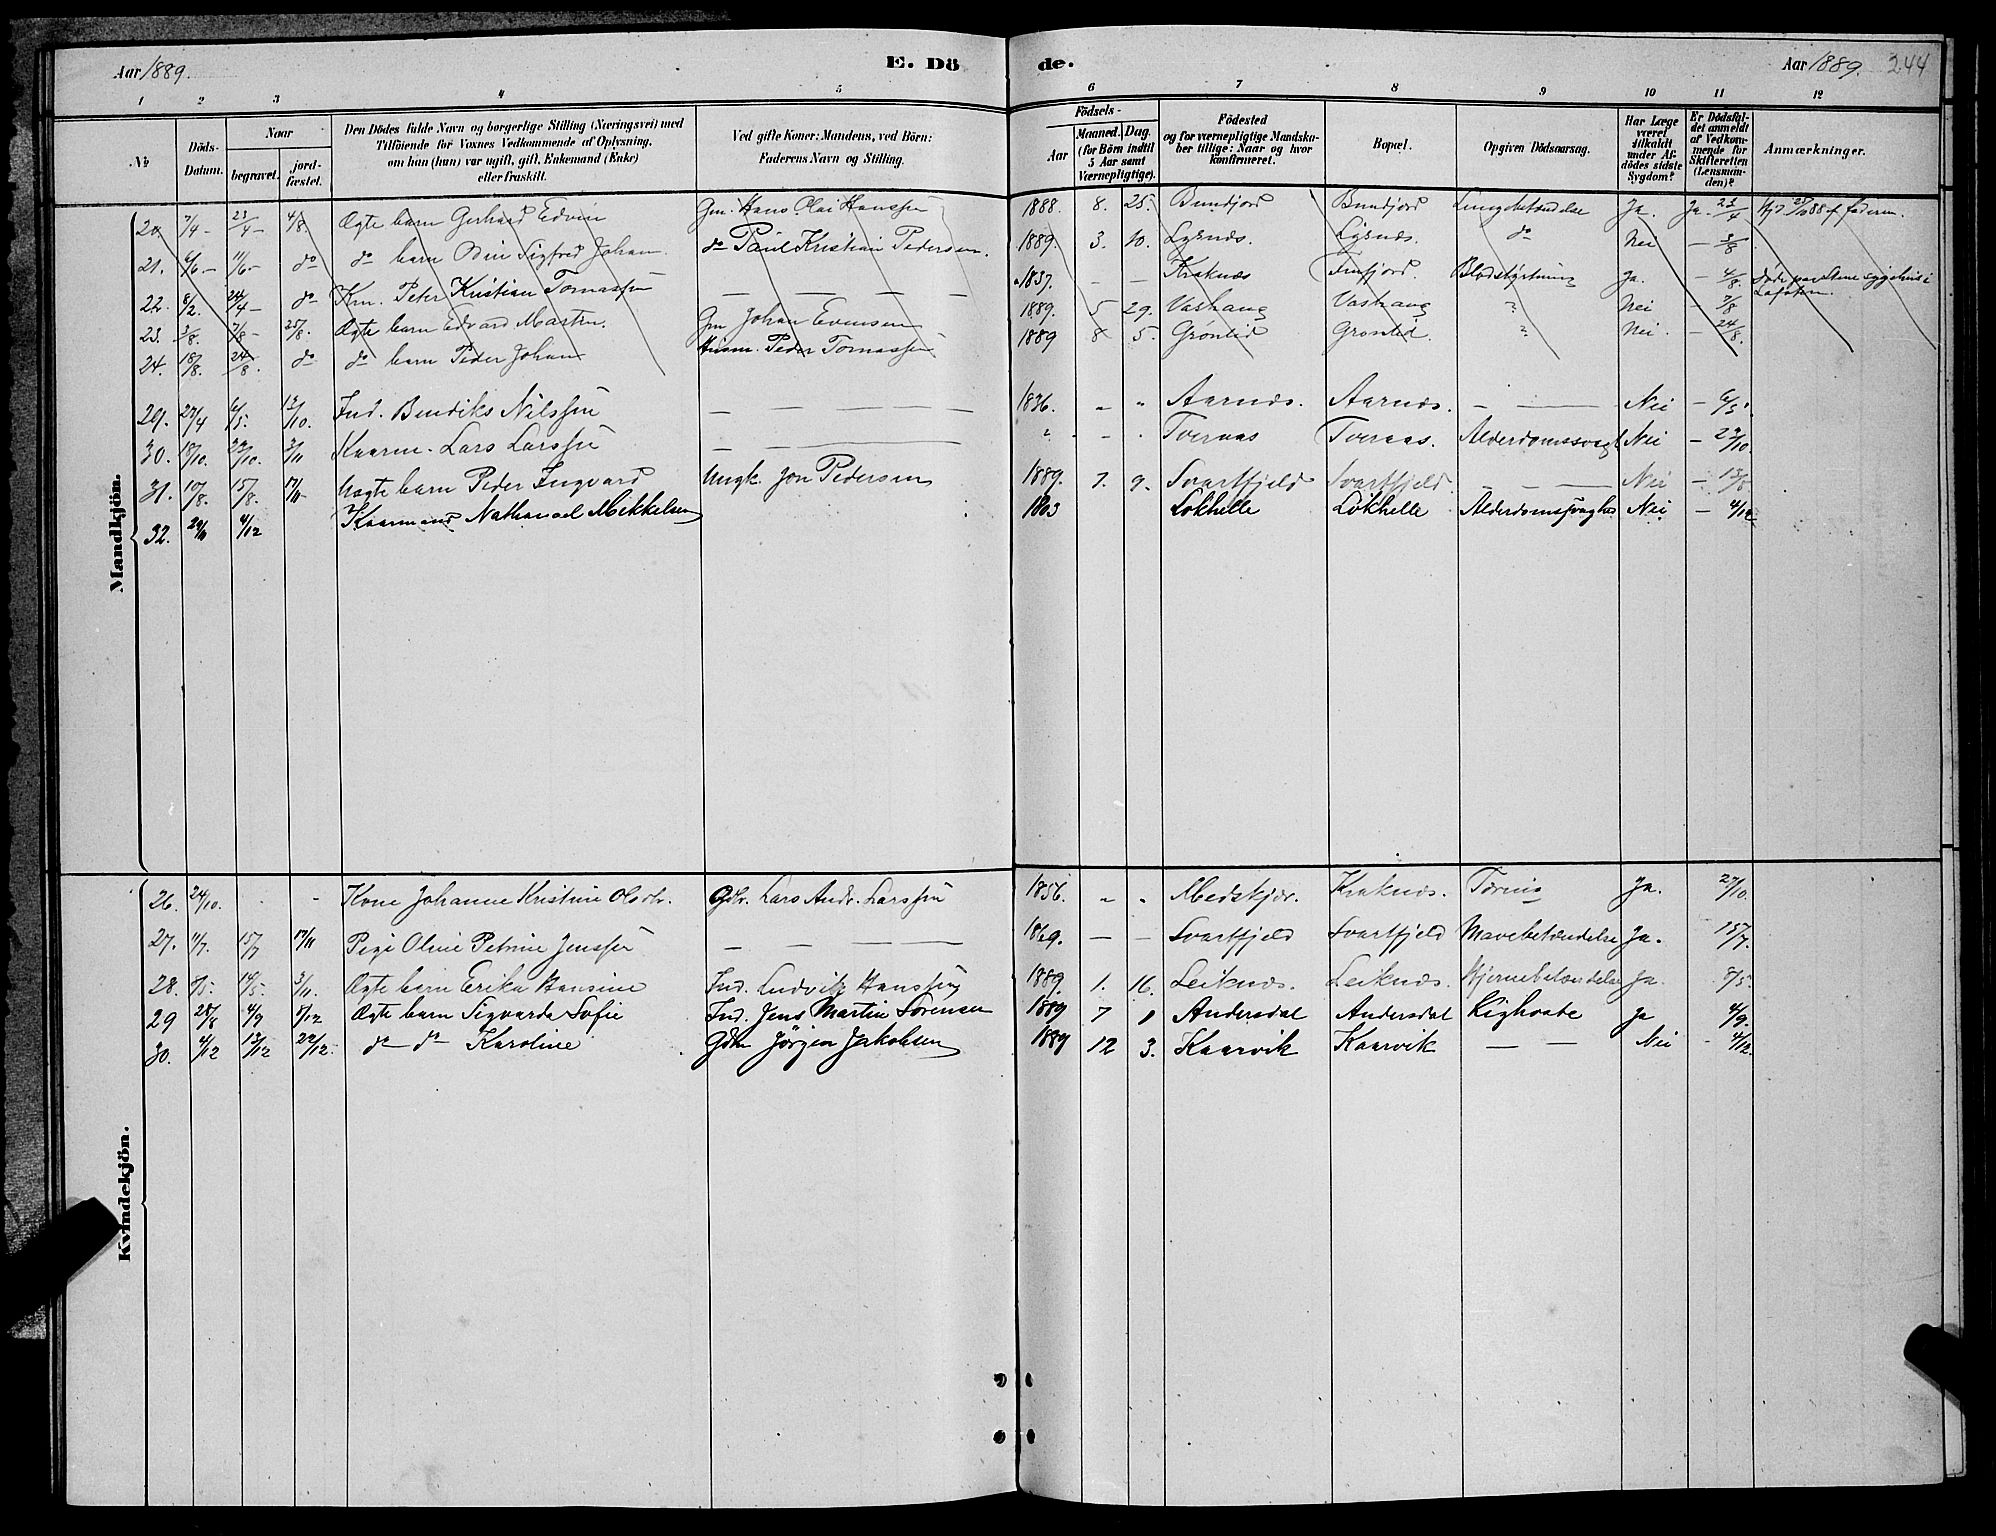 Aar 1889. E. Dö de. Aar 1889. 244
1 2 3 4 5 6 7 8 9 10 11 12
No
Döds-Datum.
Naar
begravet.
jord-fæstet.
Den Dödes fulde Navn og borgerlige Stilling (Næringsvei) med
Tilföiende for Voxnes Vedkommende af Oplysning,
om han (hun) var ugift, gift, Enkemand (Enke)
eller fraskilt.
Ved gifte Koner: Mandens, ved Börn:
Faderens Navn og Stilling.
Födsels-
Aar
Maaned. Dag.
(for Börn indtil
5 Aar samt
Værnepligtige).
Födested
og for værnepligtige Mandska-
ber tillige: Naar og hvor
konfirmeret.
Bopæl.
Opgiven Dödsaarsag.
Har Læge
været
tilkaldt
under Af-
dödes sidste
Sygdom?
Er Dödsfal-
det anmeldt
af Vedkom-
mende for
Skifteretten
(Lensman-
den)?
Anmærkninger.
Mandkjön.
20. 7/4 - 23/4 - 4/8. Ægte barn Gerhard Edvin Gm. Hans Olai Hanssen 1888. 8. 25. Bundfjord Bundfjord Lungebetændelse Ja. Ja. 23/4
21. 6/6 - 11/6 - do do barn Odin Sigfred Johan do Paul Kristian Pedersen. 1889. 3. 10. Lysnæs. Lysnæs. do Nei — 3/8
22. 24/4 - do Km. Peter Kristian Tomassen — — — 1837. — — Kraknæs Finfjord. Blodstyrtning Ja. — 4/8.
23. 3/8. 7/8 - 25/8. Ægte barn Edvard Martin. Gm Johan Evensen 1889. 5 29. Vashaug Vashaug ? Nei — 7/8
24. 18/8. 24/8. do do barn Peder Johan Husm. Peder Tomassen 1889 8 5. Grønlid Grønlid. ? Nei. — 24/8.
29. 27/4 6/5. 13/10. Ind. Bendiks Nilssen — — — — 1836. " " Aarnæs. Aarnæs. — — Nei — 6/5.
30. 18/10. 22/10. 3/11 Kaarm. Lars Larssen — — " - - Tvernas Tvernas. Alderdomssvagh Nei — 22/10.
31. 10/8. 15/8. 17/11 Uægte barn Peder Ingvard Ungk. Jon Pedersen 1889. 7. 9. Svartfjeld Svartfjeld — — — Nei — 15/8
32. 4/12 Kaarmand Nathanael Mikkelsen 1803 Løkhelle Løkhelle Alderdomssvaghed Nei — 4/12
Kvindekjön.
26. 24/10. - - Kone Johanne Kristine Olsdtr. Gdbr. Lars Andr. Larssen 1856. " " Medskjær. Kraknæs. Tæring Ja. 27/10.
27. 11/7. 15/7 17/11 Pige Oline Petrine Jenssen — — — 1869. — — Svartfjeld Svartfjeld Mavebetændelse Ja. — 15/7.
28. 8/5. 19/5. 3/11. Ægte barn Erika Hansine Ind. Ludvik Hanssen 1889. 1. 16. Leiknæs. Leiknæs. Hjernebetændelse Ja. 8/5.
29 28/8 4/9 8/12 Ægte barn Sigvarda Sofie Ind. Jens Martin Sørensen 1889 7 1 Andersdal Andersdal Kighoste Ja 4/9.
30. 4/12 13/12 22/12. do do Karoline Gdbr Jørgen Jakobsen 1889 12 3. Kaarvik Kaarvik — — Nei - 4/12.